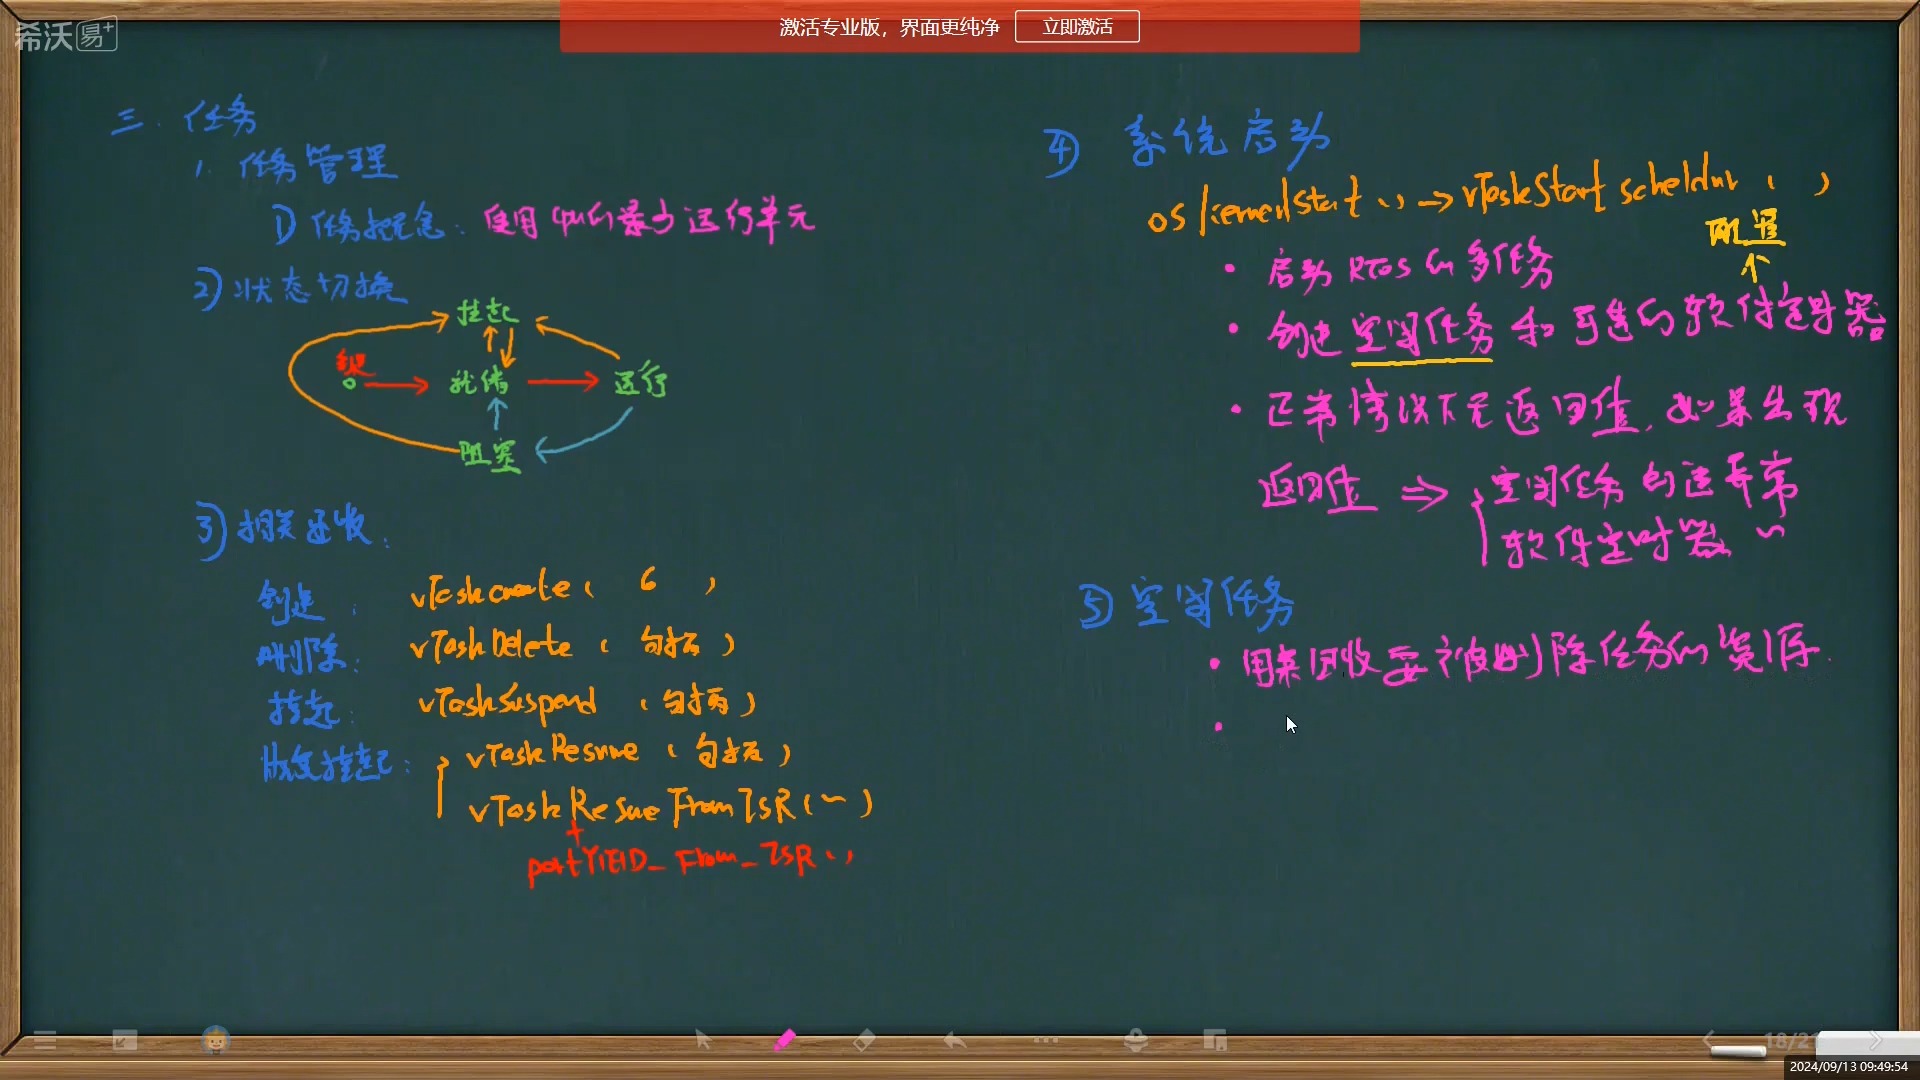 希沃易+
激活专业版，界面更纯净 立即激活
三. 任务
1. 任务管理
① 任务概念: 使用CPU的最小运行单元
2) 状态切换
挂起
就绪 运行
阻塞
3) 相关接收:
创建: vTaskCreate( 6 )
删除: vTaskDelete( 句柄 )
挂起: vTaskSuspend (句柄)
恢复挂起: vTaskResume (句柄)
vTaskResueFromISR(~)
+
portYIEID_From_ISR()
④ 系统启动
oskernelStart() → vTaskStart scheldur ( )
配置
↑
• 启动RTOS的多任务
• 创建空闲任务和可选的软件定时器
• 正常情况下无返回值, 如果出现
返回值 ⇒ 空闲任务创建异常
软件定时器 ~
⑤ 空闲任务
• 用来回收要被删除任务的资源.
•
18/21
2024/09/13 09:49:54